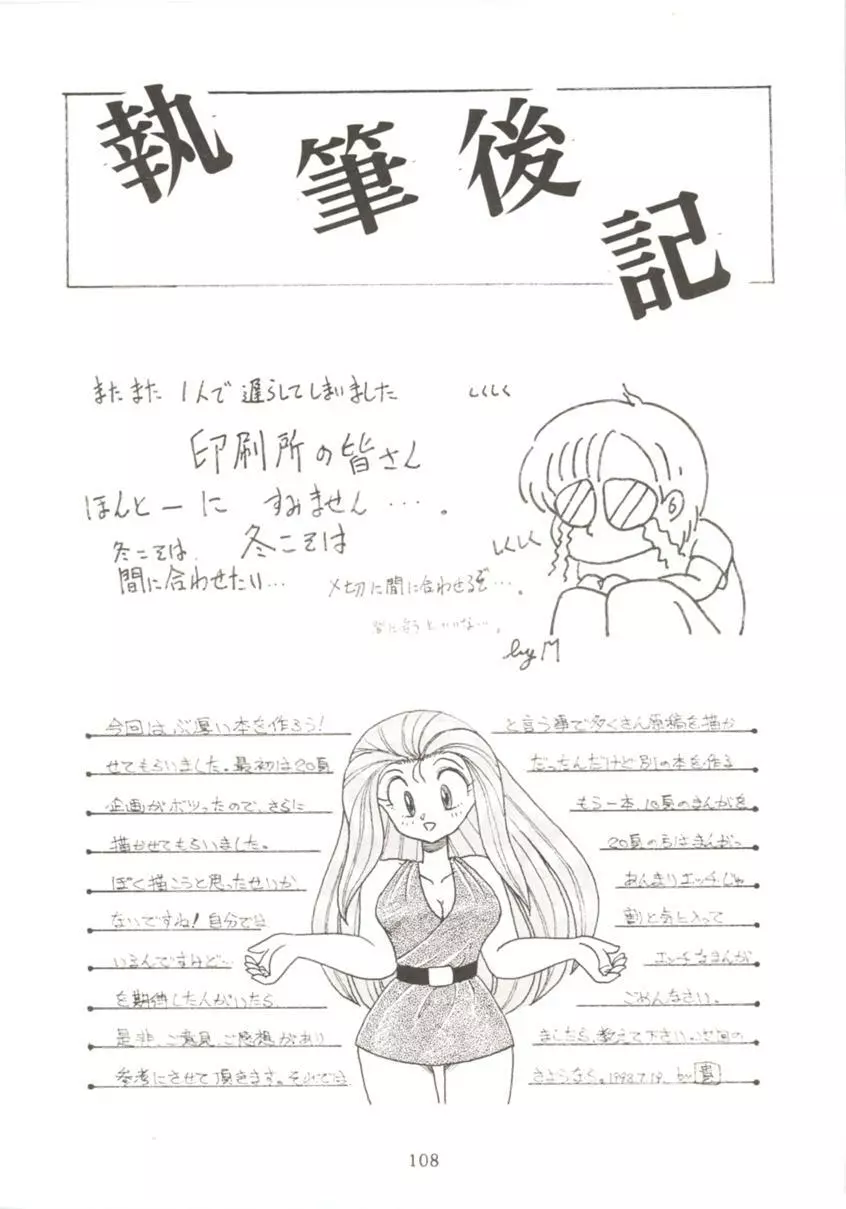 執筆後記
またまた 1人で遅らしてしまいました
しくしく
印刷所の皆さん
ほんとーに すみません…。
しくしく
冬こそは、冬こそは
間に合わせたい…
〆切に間に合わせるぞ…。
by M
今回はぶ厚い本を作ろう!と言う事で多くさん原稿を描か
せてもらいました。最初は20頁だったんだけど別の本を作る
企画がボツったので、さらにもう一本、10頁のまんがを
描かせてもらいました。20頁の方はまんがっ
ぽく描こうと思ったせいかあんまりエッチじゃ
ないですね!自分では割と気に入って
いるんですけど…エッチなまんが
を期待した人がいたらごめんなさい。
是非、ご意見、ご感想がありましたら、教えて下さい。次回の
参考にさせて頂きます。それではさようなら。1998.7.19. by 貴
108